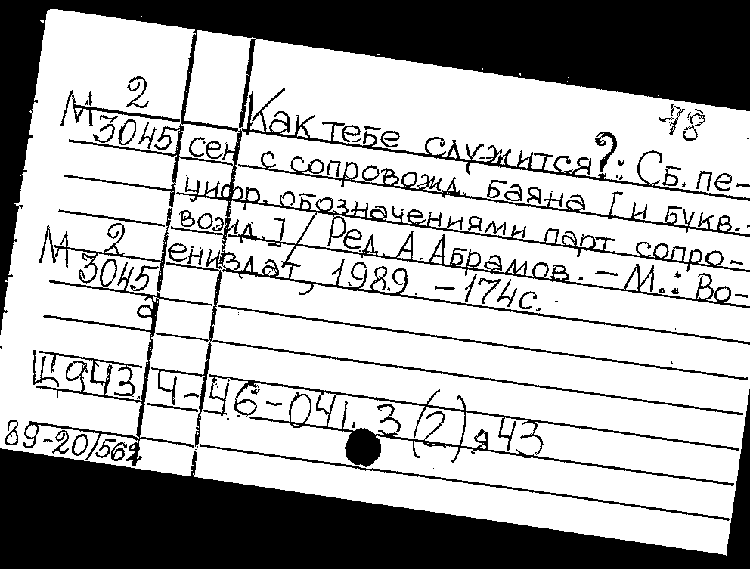 -78
М 2 Как тебе служится?: Сб. пе-
3045 сен с сопровожд. баяна [и букв.-
цифр. обозначениями парт. сопро-
вожд.] / Ред. А. Абрамов. – М.: Во-
М 2 ениздат, 1989. – 174с.
3045
а
Ц943.4-46-041.3(2)я43
89-20/562